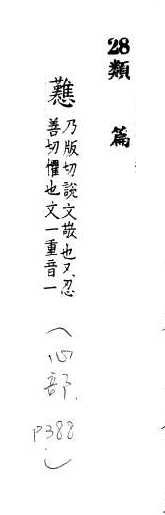 28類篇
戁
乃版切說文敬也又忍
善切懼也文一重音一
(心部
P388)